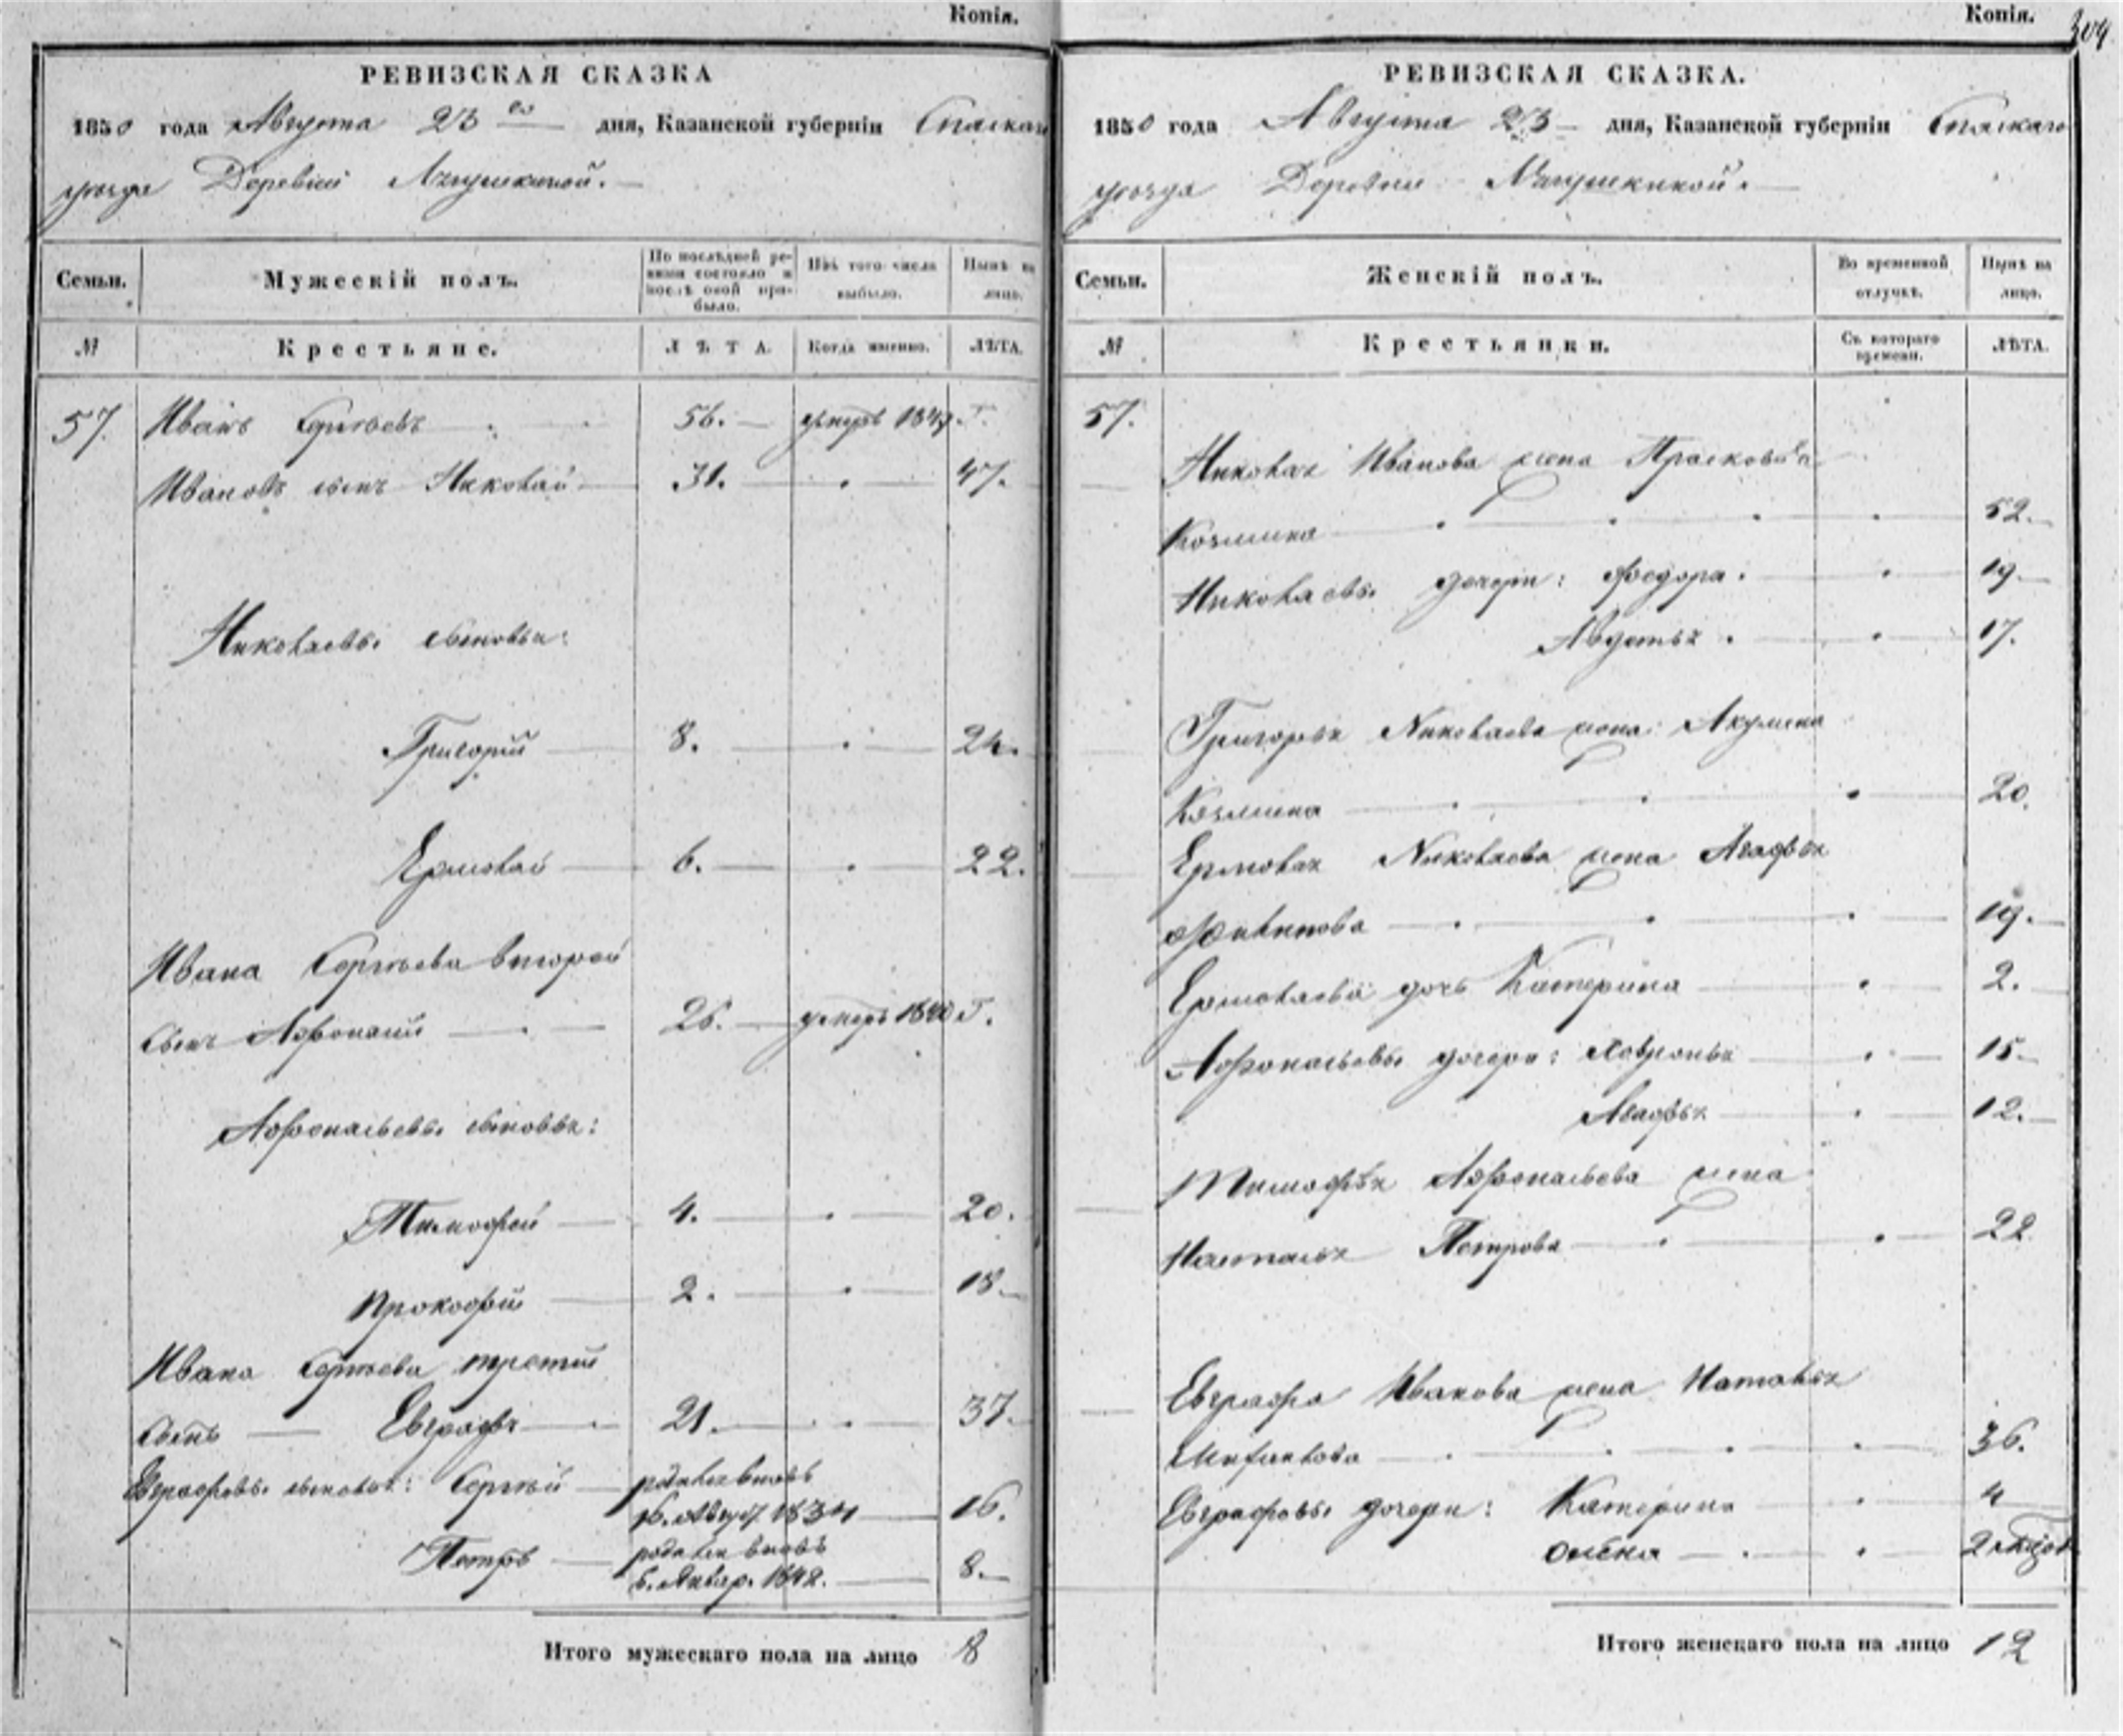 Копія.
РЕВИЗСКАЯ СКАЗКА
1850 года Августа 23го дня, Казанской губерніи Спаскаго
уезда Деревни
Семьи. Мужескій полъ. По послѣдней ревизіи состояло и послѣ оной прибыло. Изъ того числа выбыло. Нынѣ на лицо.
№ Крестьяне. ЛѢТА. Когда именно. ЛѢТА.
57. Иванъ Сергѣевъ 56. умеръ 1849. Г.
Ивановъ сынъ Николай 31. 47.
Николаевы сыновья:
Григорій 8. 24.
Ермолай 6. 22.
Ивана Сергѣева второй
сынъ Афонасій 26. умеръ 1840 Г.
Афонасьевы сыновья:
Тимофей 4. 20.
Прокофій 2. 18.
Ивана Сергѣева третій
сынъ Евграфъ 21. 37.
Евграфовы сыновья: Сергѣй родился вновь
въ Август 1834 16.
Петръ родился вновь
в. Январ. 1842. 8.
Итого мужескаго пола на лицо 8
Копія. 304
РЕВИЗСКАЯ СКАЗКА.
1850 года Августа 23 дня, Казанской губерніи Спаскаго
уезда Деревни
Семьи. Женскій полъ. Во временной отлучкѣ. Нынѣ на лицо.
№ Крестьянки. Съ котораго времени. ЛѢТА.
57.
Николая Иванова жена Прасковья
Козмина 52.
Николаевы дочери: Федора. 19
Авдотья. 17.
Григорья Николаева жена Акулина
Козмина 20.
Ермолая Николаева жена Агафья
Филипова 19.
Ермолаева дочь Катерина 2.
Афонасьевы дочери: Хавронья 15
Агафья 12.
Тимофѣя Афонасьева жена
Настасья Петрова 22
Евграфа Иванова жена Наталья
36.
Евграфовы дочери: Катерина 4
Олена 2
Итого женскаго пола на лицо 12